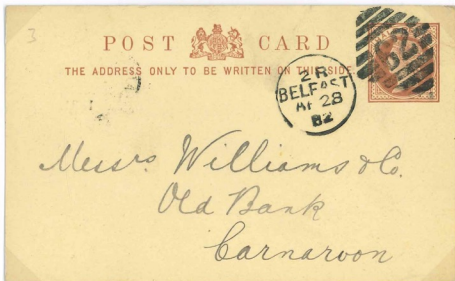 3
POST CARD
THE ADDRESS ONLY TO BE WRITTEN ON THIS SIDE
62
2 R
BELFAST
AP 28
82
Messrs Williams & Co.
Old Bank
Carnarvon